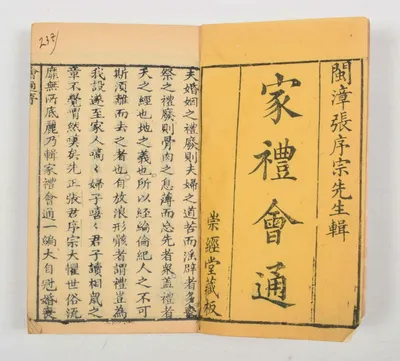 閩漳張序宗先生輯
家禮會通
崇經堂藏板
夫婚姻之禮廢則夫婦之道苦而淫辟者多喪
祭之禮廢則骨肉之恩薄而忘先者衆蓋禮者
天之經也地之義也所以經綸倫紀人之不可
斯須離而去之者也自放浪形骸者謂禮豈為
我設遂至家人嗃〻婦子嘻〻君子讀相鼠之
章不覺喟然嘆矣先正張君序宗大懼世俗流
靡無所底麗乃輯家禮會通一編夫自冠婚喪
會通序